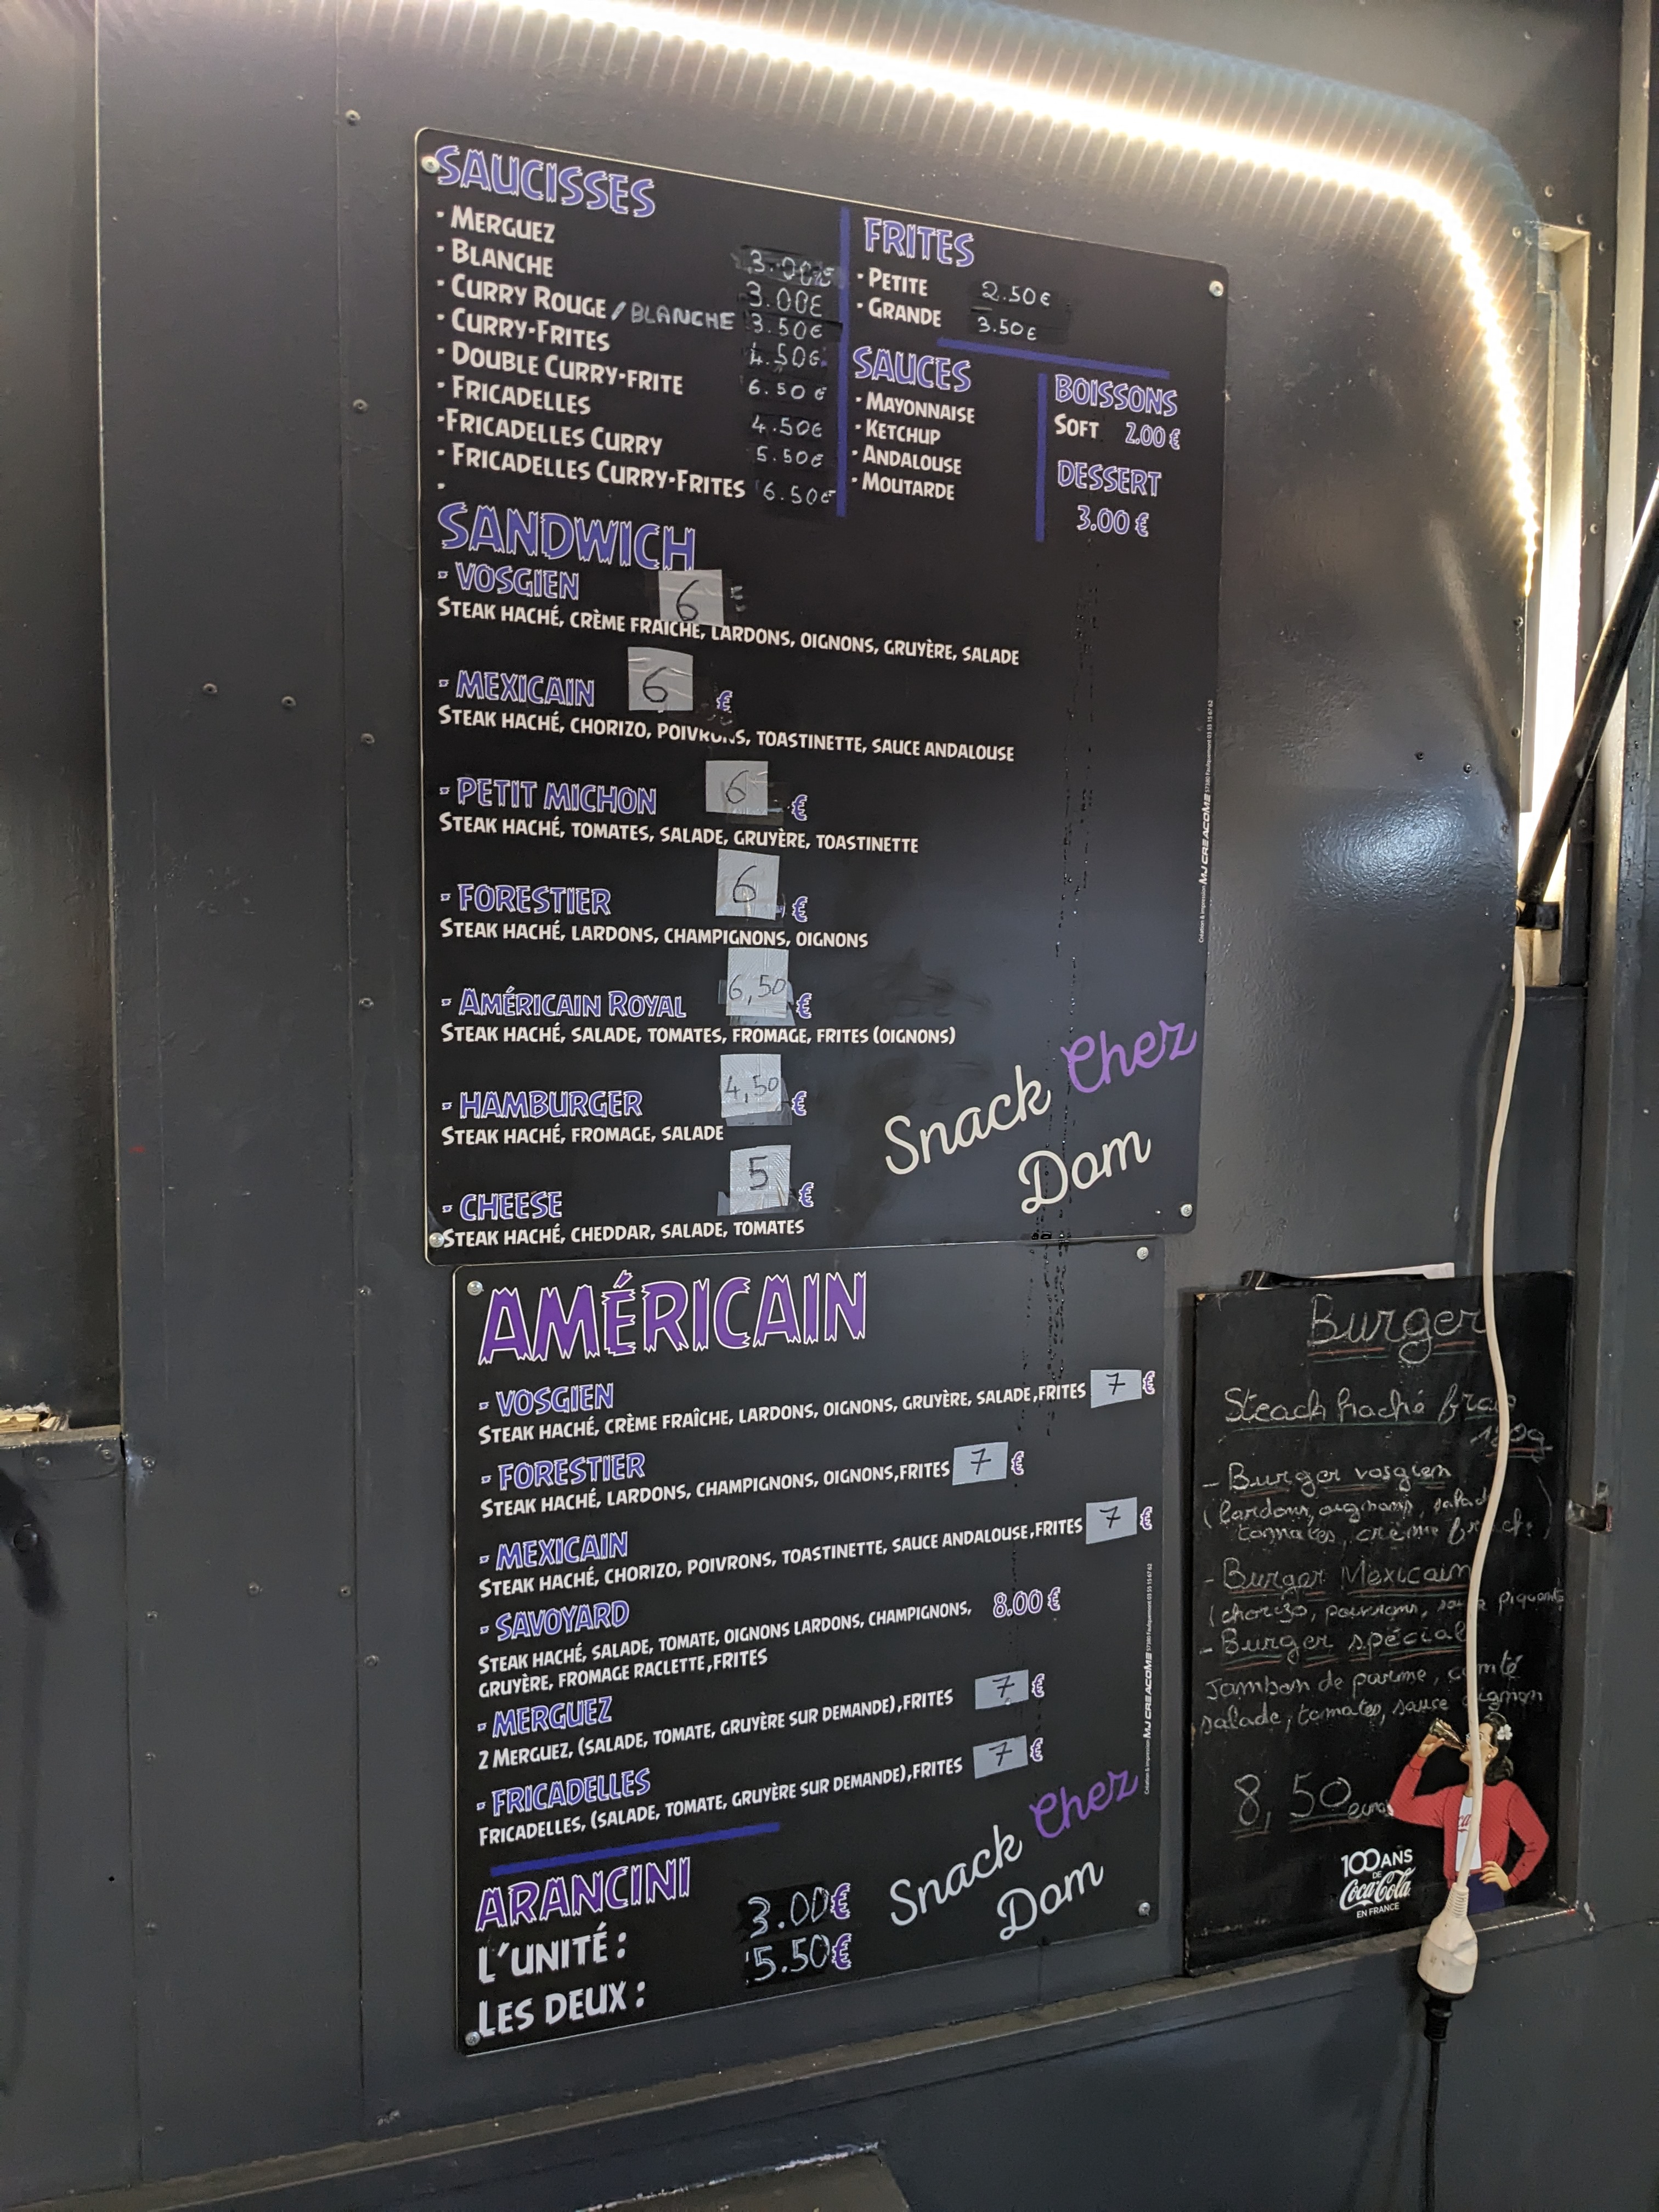 SAUCISSES
· MERGUEZ 3.00€
· BLANCHE 3.00€
· CURRY ROUGE / BLANCHE 3.50€
· CURRY-FRITES 4.50€
· DOUBLE CURRY-FRITE 6.50€
· FRICADELLES 4.50€
·FRICADELLES CURRY 5.50€
· FRICADELLES CURRY-FRITES 6.50€
·
FRITES
· PETITE 2.50€
· GRANDE 3.50€
SAUCES
· MAYONNAISE
· KETCHUP
· ANDALOUSE
· MOUTARDE
BOISSONS
SOFT 2.00 €
DESSERT
3.00 €
SANDWICH
- VOSGIEN 6 €
STEAK HACHÉ, CRÈME FRAICHE, LARDONS, OIGNONS, GRUYÈRE, SALADE
- MEXICAIN 6 €
STEAK HACHÉ, CHORIZO, POIVRONS, TOASTINETTE, SAUCE ANDALOUSE
- PETIT MICHON 6 €
STEAK HACHÉ, TOMATES, SALADE, GRUYÈRE, TOASTINETTE
- FORESTIER 6 €
STEAK HACHÉ, LARDONS, CHAMPIGNONS, OIGNONS
- AMÉRICAIN ROYAL 6,50 €
STEAK HACHÉ, SALADE, TOMATES, FROMAGE, FRITES (OIGNONS)
- HAMBURGER 4,50 €
STEAK HACHÉ, FROMAGE, SALADE
- CHEESE 5 €
STEAK HACHÉ, CHEDDAR, SALADE, TOMATES
Snack Chez
Dom
Création & impression MJ CREACOM
AMÉRICAIN
- VOSGIEN
STEAK HACHÉ, CRÈME FRAÎCHE, LARDONS, OIGNONS, GRUYÈRE, SALADE,FRITES 7 €
- FORESTIER
STEAK HACHÉ, LARDONS, CHAMPIGNONS, OIGNONS,FRITES 7 €
- MEXICAIN
STEAK HACHÉ, CHORIZO, POIVRONS, TOASTINETTE, SAUCE ANDALOUSE,FRITES 7 €
- SAVOYARD
STEAK HACHÉ, SALADE, TOMATE, OIGNONS LARDONS, CHAMPIGNONS, 8.00 €
GRUYÈRE, FROMAGE RACLETTE,FRITES
- MERGUEZ
2 MERGUEZ, (SALADE, TOMATE, GRUYÈRE SUR DEMANDE),FRITES 7 €
- FRICADELLES
FRICADELLES, (SALADE, TOMATE, GRUYÈRE SUR DEMANDE),FRITES 7 €
ARANCINI
L'UNITÉ : 3.00€
LES DEUX : 5.50€
Snack Chez
Dom
Création & impression MJ CREACOM
Burger
Steach haché frais
- Burger vosgien
(lardons, oignons, salade
tomates, crème
- Burger Mexicain
(chorizo, poivrons, piquante
- Burger spécial
Jambon de parme, comté
salade, tomates, sauce oignon
8,50 euros
100 ANS
DE
Coca-Cola
EN FRANCE